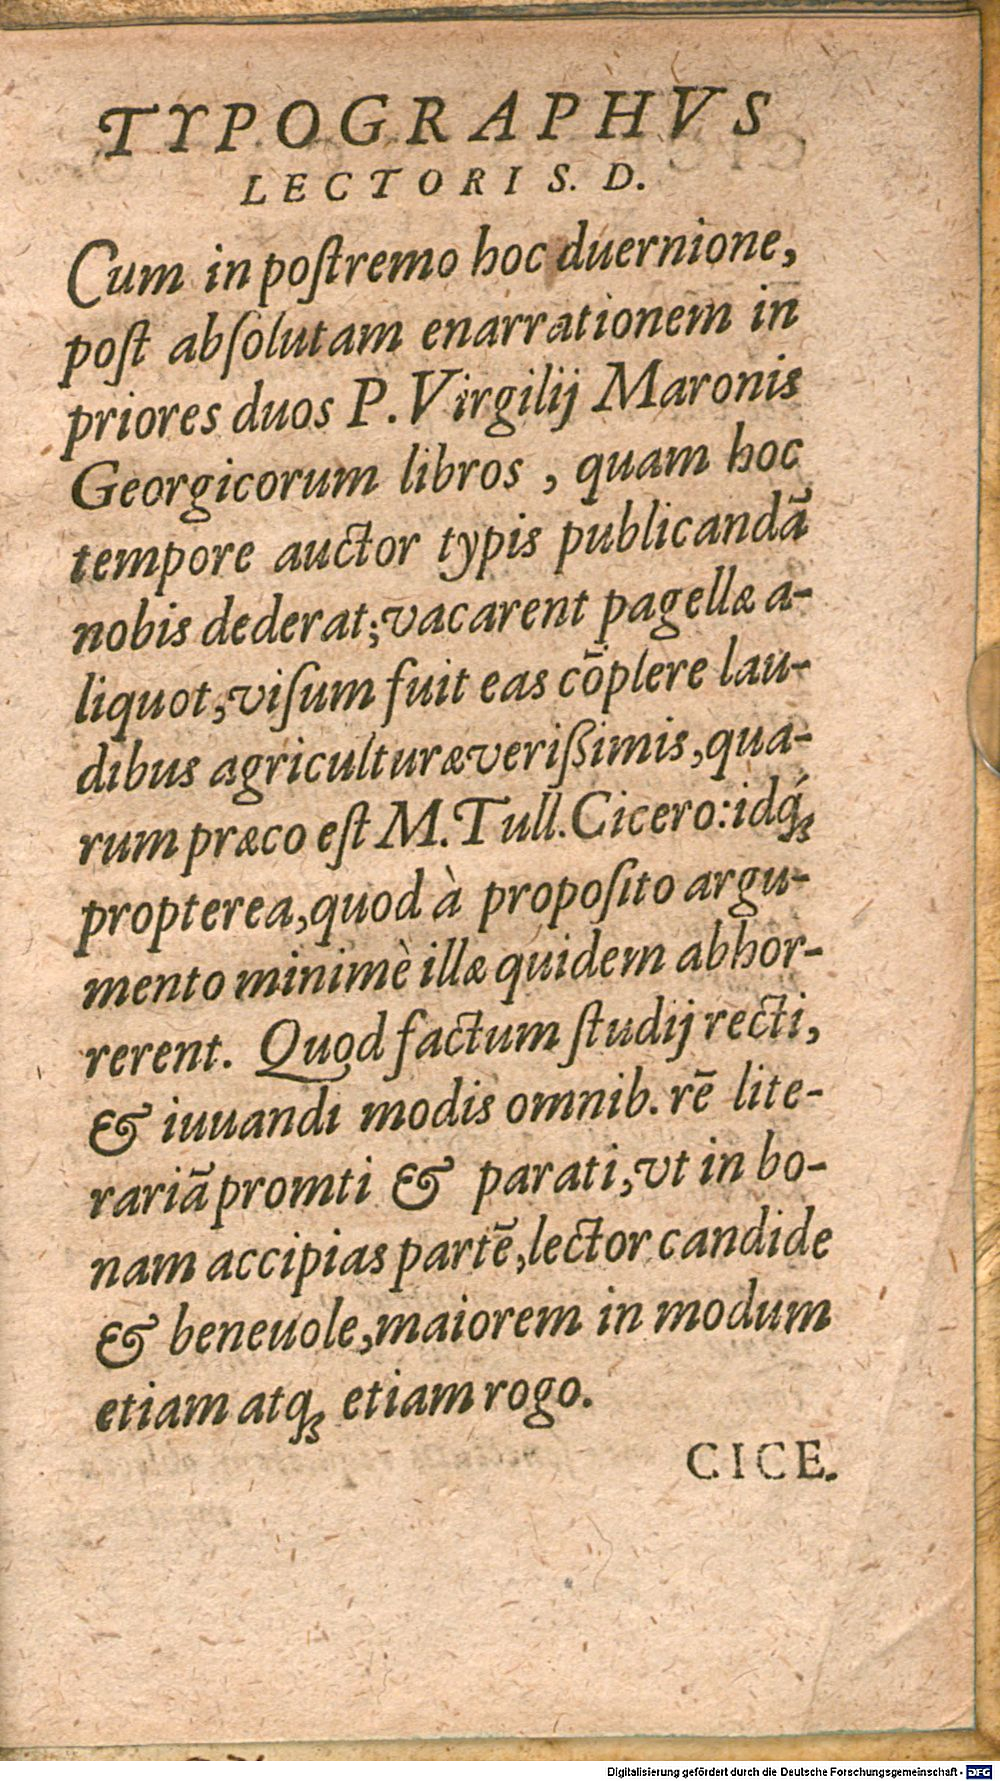 TYPOGRAPHVS
LECTORI S. D.
Cum in poſtremo hoc duernione,
poſt abſolutam enarrationem in
priores duos P. Virgilij Maronis
Georgicorum libros , quam hoc
tempore auctor typis publicandā
nobis dederat; vacarent pagellæ a-
liquot, viſum fuit eas cōplere lau-
dibus agriculturæ veriſſimis, qua-
rum præco eſt M. Tull. Cicero: idq́;
propterea, quod à propoſito argu-
mento minimè illæ quidem abhor-
rerent. Quod factum ſtudij recti,
& iuuandi modis omnib. rē lite-
rariā promti & parati, vt in bo-
nam accipias partē, lector candide
& beneuole, maiorem in modum
etiam atq; etiam rogo.
CICE.
Digitalisierung gefördert durch die Deutsche Forschungsgemeinschaft - DFG